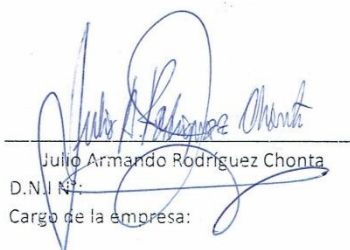 Julio A. Rodriguez Chonta
Julio Armando Rodríguez Chonta
D.N.I N°:
Cargo de la empresa: